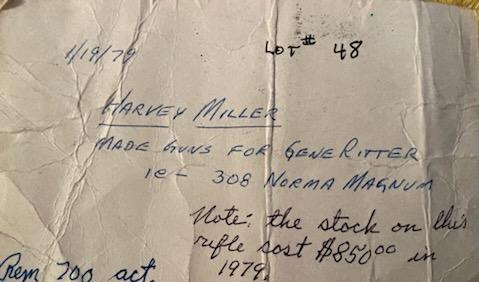 1/19/79
LOT # 48
HARVEY MILLER
MADE GUNS FOR GENE RITTER
ie - 308 NORMA MAGNUM
Note: the stock on this
rifle cost $850.00 in
1979.
Rem 700 act.